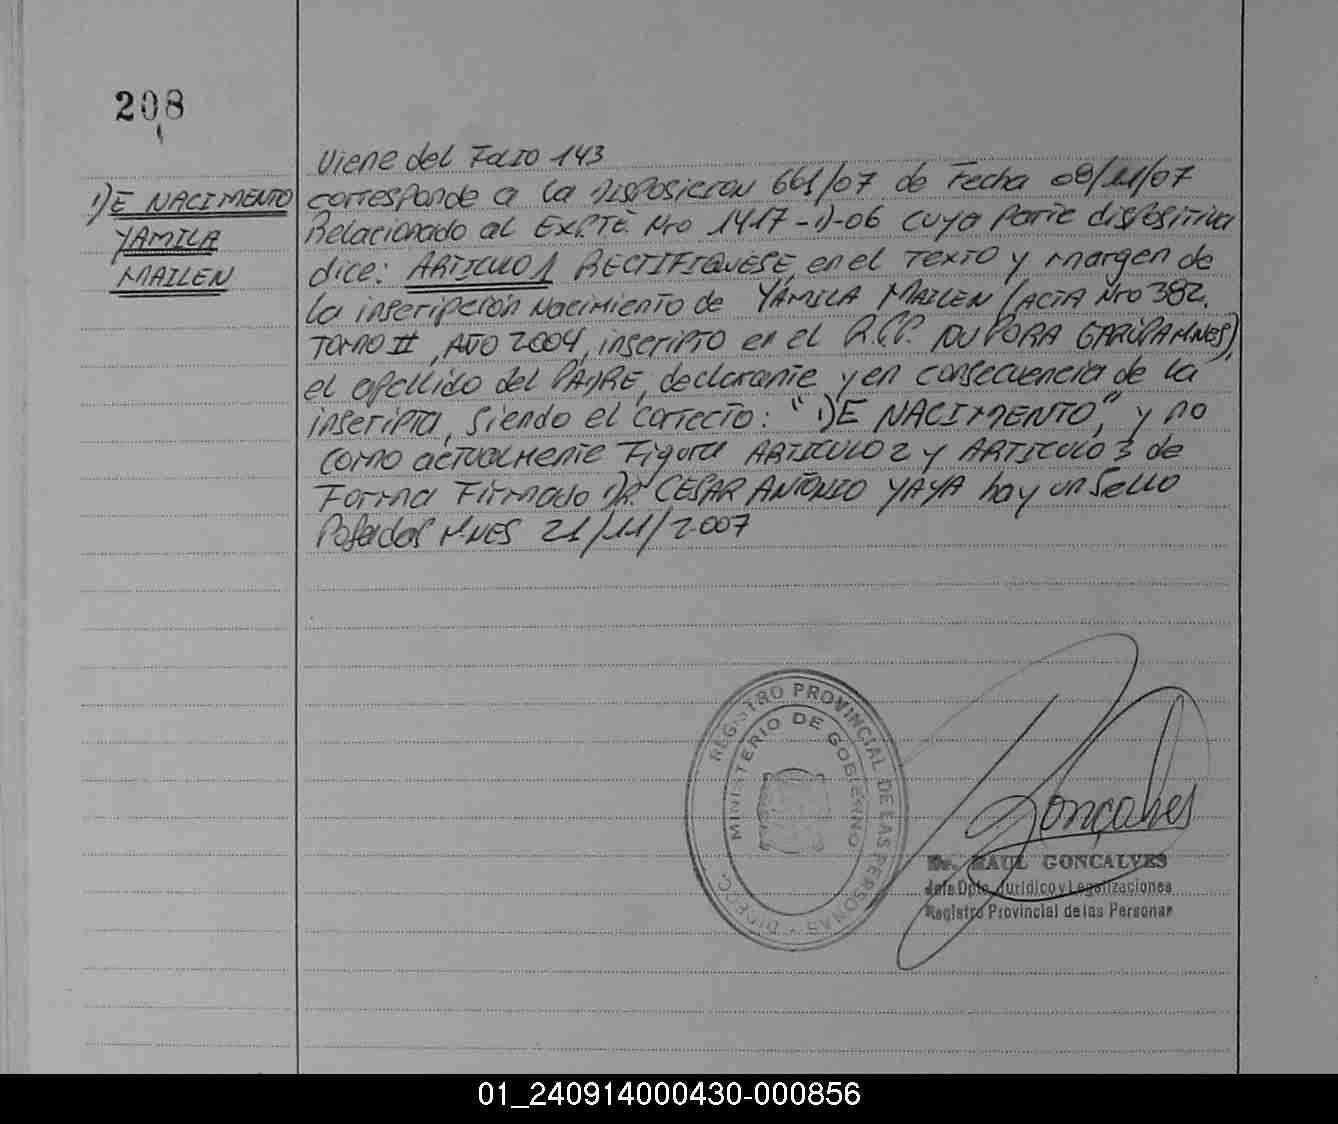 208
DE NACIMENTO
YAMILA
MAILEN
Viene del Folio 143
corresponde a la Disposicion 661/07 de Fecha 08/11/07
Relacionado al EXPTE. Nro 1417-D-06 cuya Parte dispositiva
dice: ARTICULO 1 RECTIFIQUESE, en el Texto y margen de
la inscripción Nacimiento de YAMILA MAILEN (ACTA Nro 382,
Tomo II, AÑO 2004, inscripto en el R.C.P. ÑU PORA GARUPA MNES),
el apellido del PADRE, declarante y en consecuencia de la
inscripta, siendo el correcto: "DE NACIMENTO", y no
como actualmente Figura ARTICULO 2 y ARTICULO 3 de
Forma Firmado DR CESAR ANTONIO YAYA hay un Sello
Posadas MNES 21/11/2007
REGISTRO PROVINCIAL DE LAS PERSONAS - DIRECC.
MINISTERIO DE GOBIERNO
Gonçalves
Dr. RAUL GONCALVES
Jefe Dpto. Jurídico y Legalizaciones
Registro Provincial de las Personas
01_240914000430-000856